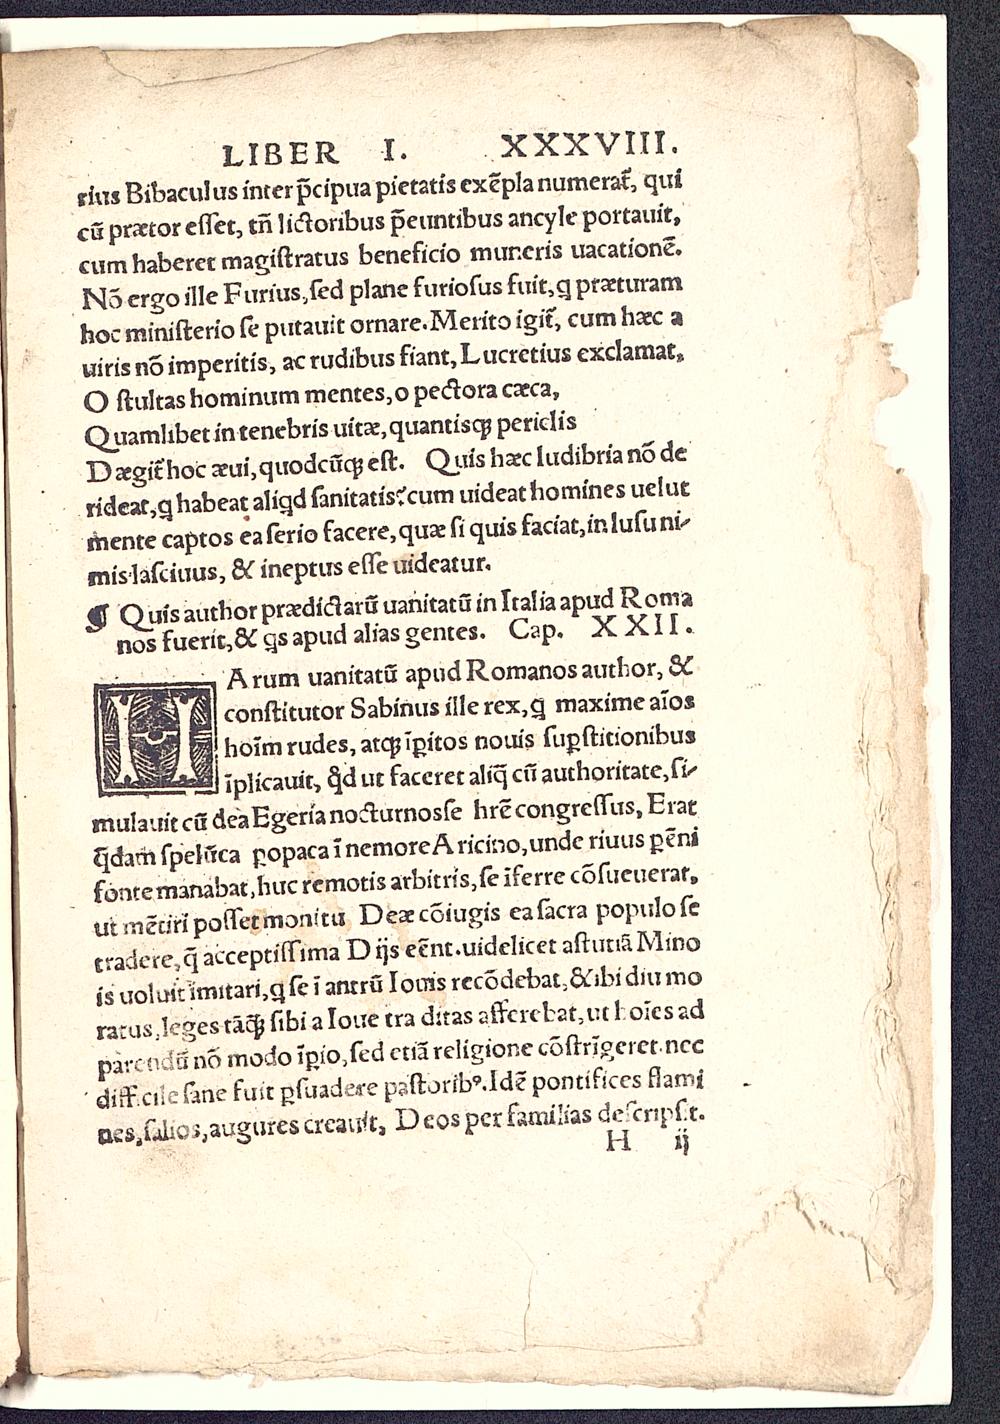 LIBER I. XXXVIII.
rius Bibaculus inter p̃cipua pietatis exẽpla numerat̃, qui
cũ prætor esset, tñ lictoribus p̃euntibus ancyle portauit,
cum haberet magistratus beneficio muneris uacationẽ.
Nõ ergo ille Furius, sed plane furiosus fuit, q præturam
hoc ministerio se putauit ornare. Merito igit̃, cum hæc a
uiris nõ imperitis, ac rudibus fiant, Lucretius exclamat,
O stultas hominum mentes, o pectora cæca,
Quamlibet in tenebris uitæ, quantisq; periclis
Dægit̃ hoc æui, quodcũq; est. Quis hæc ludibria nõ de
rideat, q habeat aliqd sanitatis? cum uideat homines uelut
mente captos ea serio facere, quæ si quis faciat, in lusu ni-
mis lasciuus, & ineptus esse uideatur.
¶ Quis author prædictarũ uanitatũ in Italia apud Roma
nos fuerit, & qs apud alias gentes. Cap. XXII.
HArum uanitatũ apud Romanos author, &
constitutor Sabinus ille rex, q maxime aĩos
hoĩm rudes, atq; ĩꝑitos nouis suꝑstitionibus
ĩplicauit, qd ut faceret aliq̃ cũ authoritate, si-
mulauit cũ dea Egeria nocturnos se hr̃e congressus, Erat
q̃dam spelũca ꝑopaca ĩ nemore Aricino, unde riuus ꝑẽni
fonte manabat, huc remotis arbitris, se ĩferre cõsueuerat,
ut mẽtiri posset monitu Deæ cõiugis ea sacra populo se
tradere, q̃ acceptissima Dijs eẽnt. uidelicet astutiã Mino
is uoluit imitari, q se ĩ antrũ Iouis recõdebat, & ibi diu mo
ratus, leges tãq̃ sibi a Ioue tra ditas afferebat, ut hoĩes ad
parendũ nõ modo ĩꝑio, sed etiã religione cõstrĩgeret. nec
difficile sane fuit ꝑsuadere pastoribꝰ. Idẽ pontifices flami
nes, salios, augures creauit, Deos per familias descripsit.
H ij